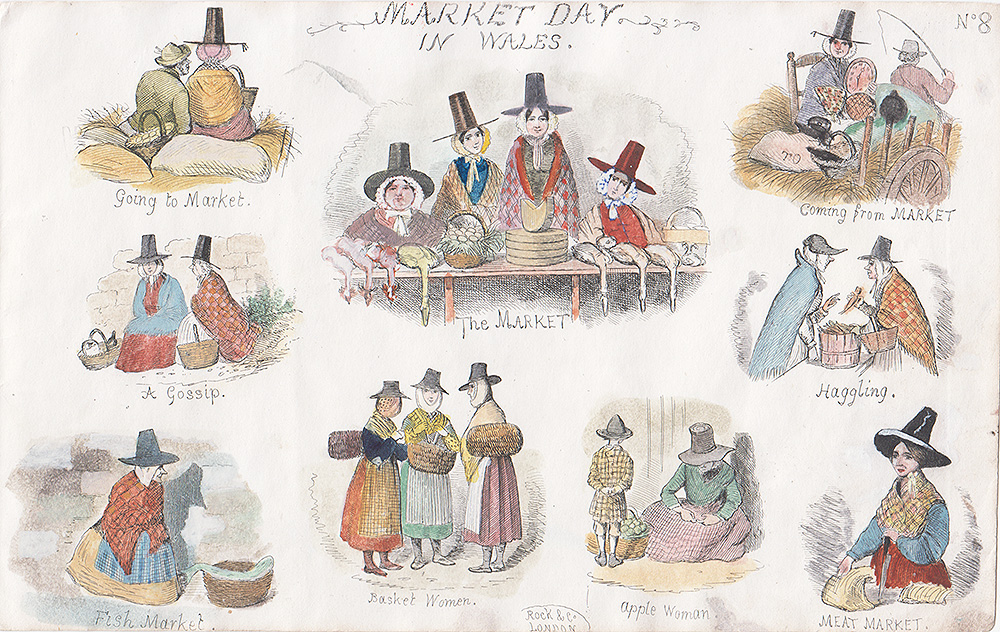 MARKET DAY
IN WALES.
Nº 8
Going to Market.
The MARKET
Coming from MARKET
A Gossip.
Haggling.
Fish Market.
Basket Women.
Apple Woman.
MEAT MARKET.
ROCK & Co
LONDON